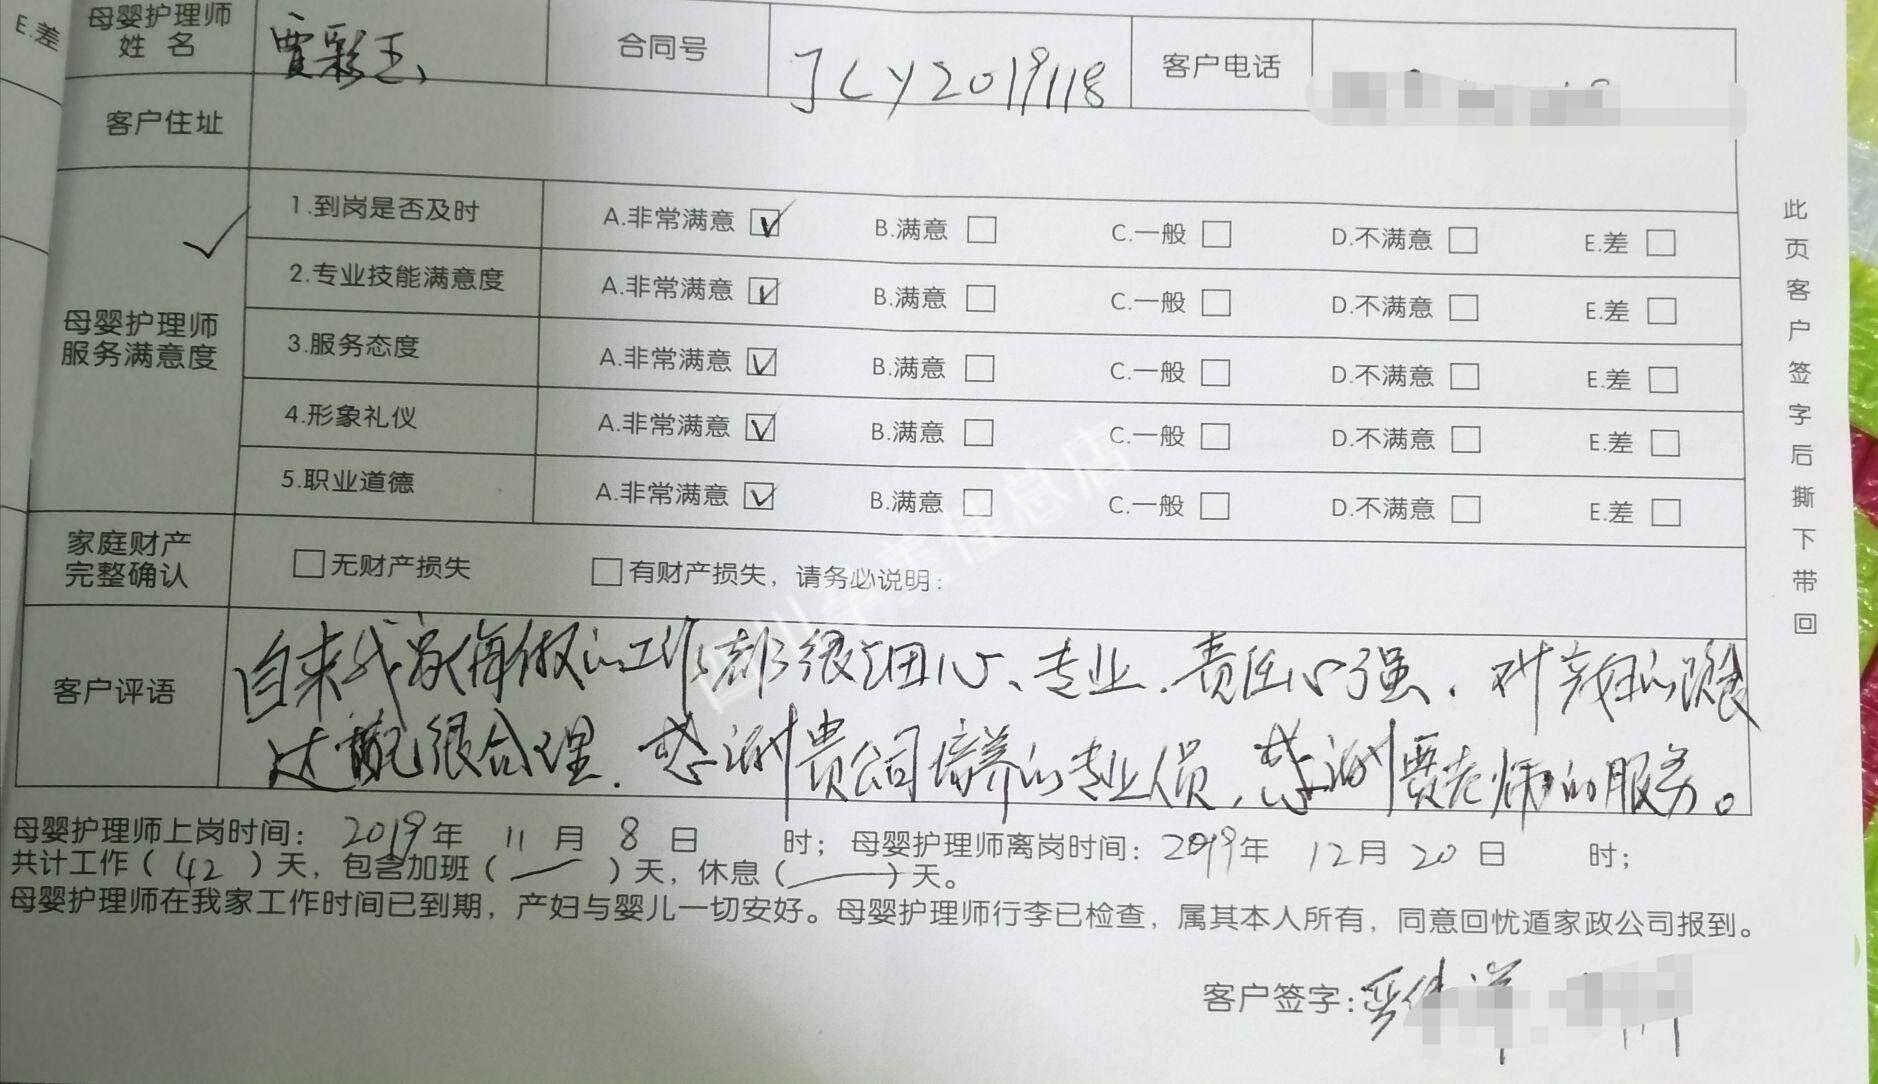 E.差
母婴护理师
姓 名
贾彩玉
合同号
JLY2019118
客户电话
客户住址
母婴护理师
服务满意度
1.到岗是否及时 A.非常满意 ☑ B.满意 □ C.一般 □ D.不满意 □ E.差 □
2.专业技能满意度 A.非常满意 ☑ B.满意 □ C.一般 □ D.不满意 □ E.差 □
3.服务态度 A.非常满意 ☑ B.满意 □ C.一般 □ D.不满意 □ E.差 □
4.形象礼仪 A.非常满意 ☑ B.满意 □ C.一般 □ D.不满意 □ E.差 □
5.职业道德 A.非常满意 ☑ B.满意 □ C.一般 □ D.不满意 □ E.差 □
家庭财产
完整确认
□无财产损失 □有财产损失，请务必说明：
客户评语
自来我家每做的工作都很细心、专业、责任心强、对产妇的膳食
搭配很合理. 感谢贵公司培养的专业人员, 感谢贾老师的服务。
母婴护理师上岗时间： 2019年 11月 8日 时；母婴护理师离岗时间：2019年 12月 20日 时；
共计工作（ 42 ）天，包含加班（ — ）天，休息（ — ）天。
母婴护理师在我家工作时间已到期，产妇与婴儿一切安好。母婴护理师行李已检查，属其本人所有，同意回忧遁家政公司报到。
客户签字：
此页客户签字后撕下带回